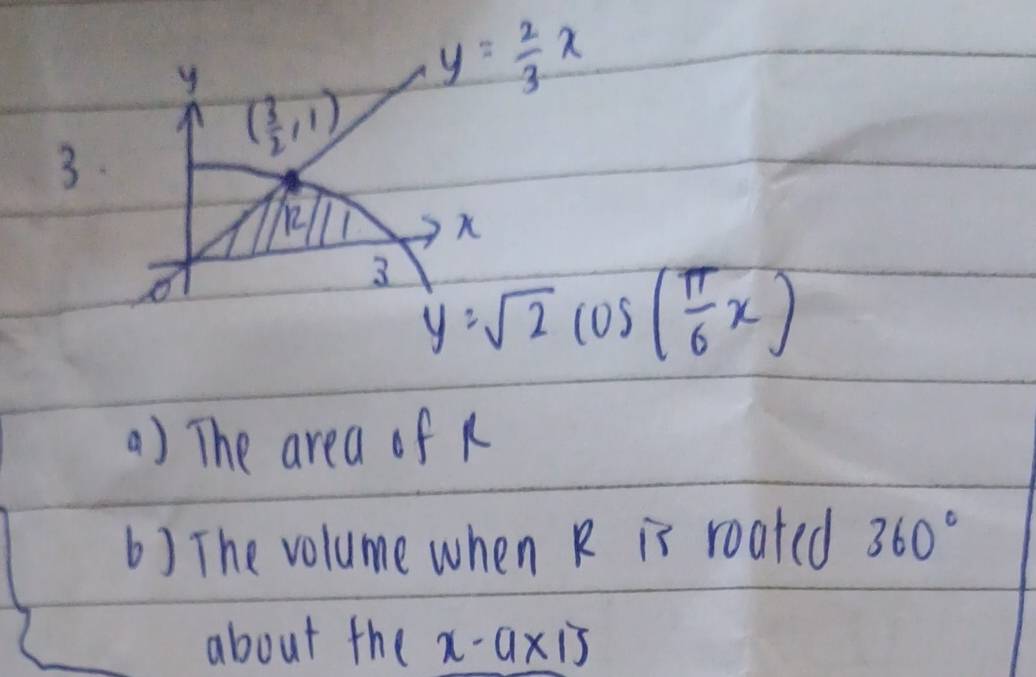 y = 2/3 x
y
(3/2, 1)
3.
R
x
0
3
y = √2 cos(π/6 x)
a) The area of R
b) The volume when R is roated 360°
about the x-axis